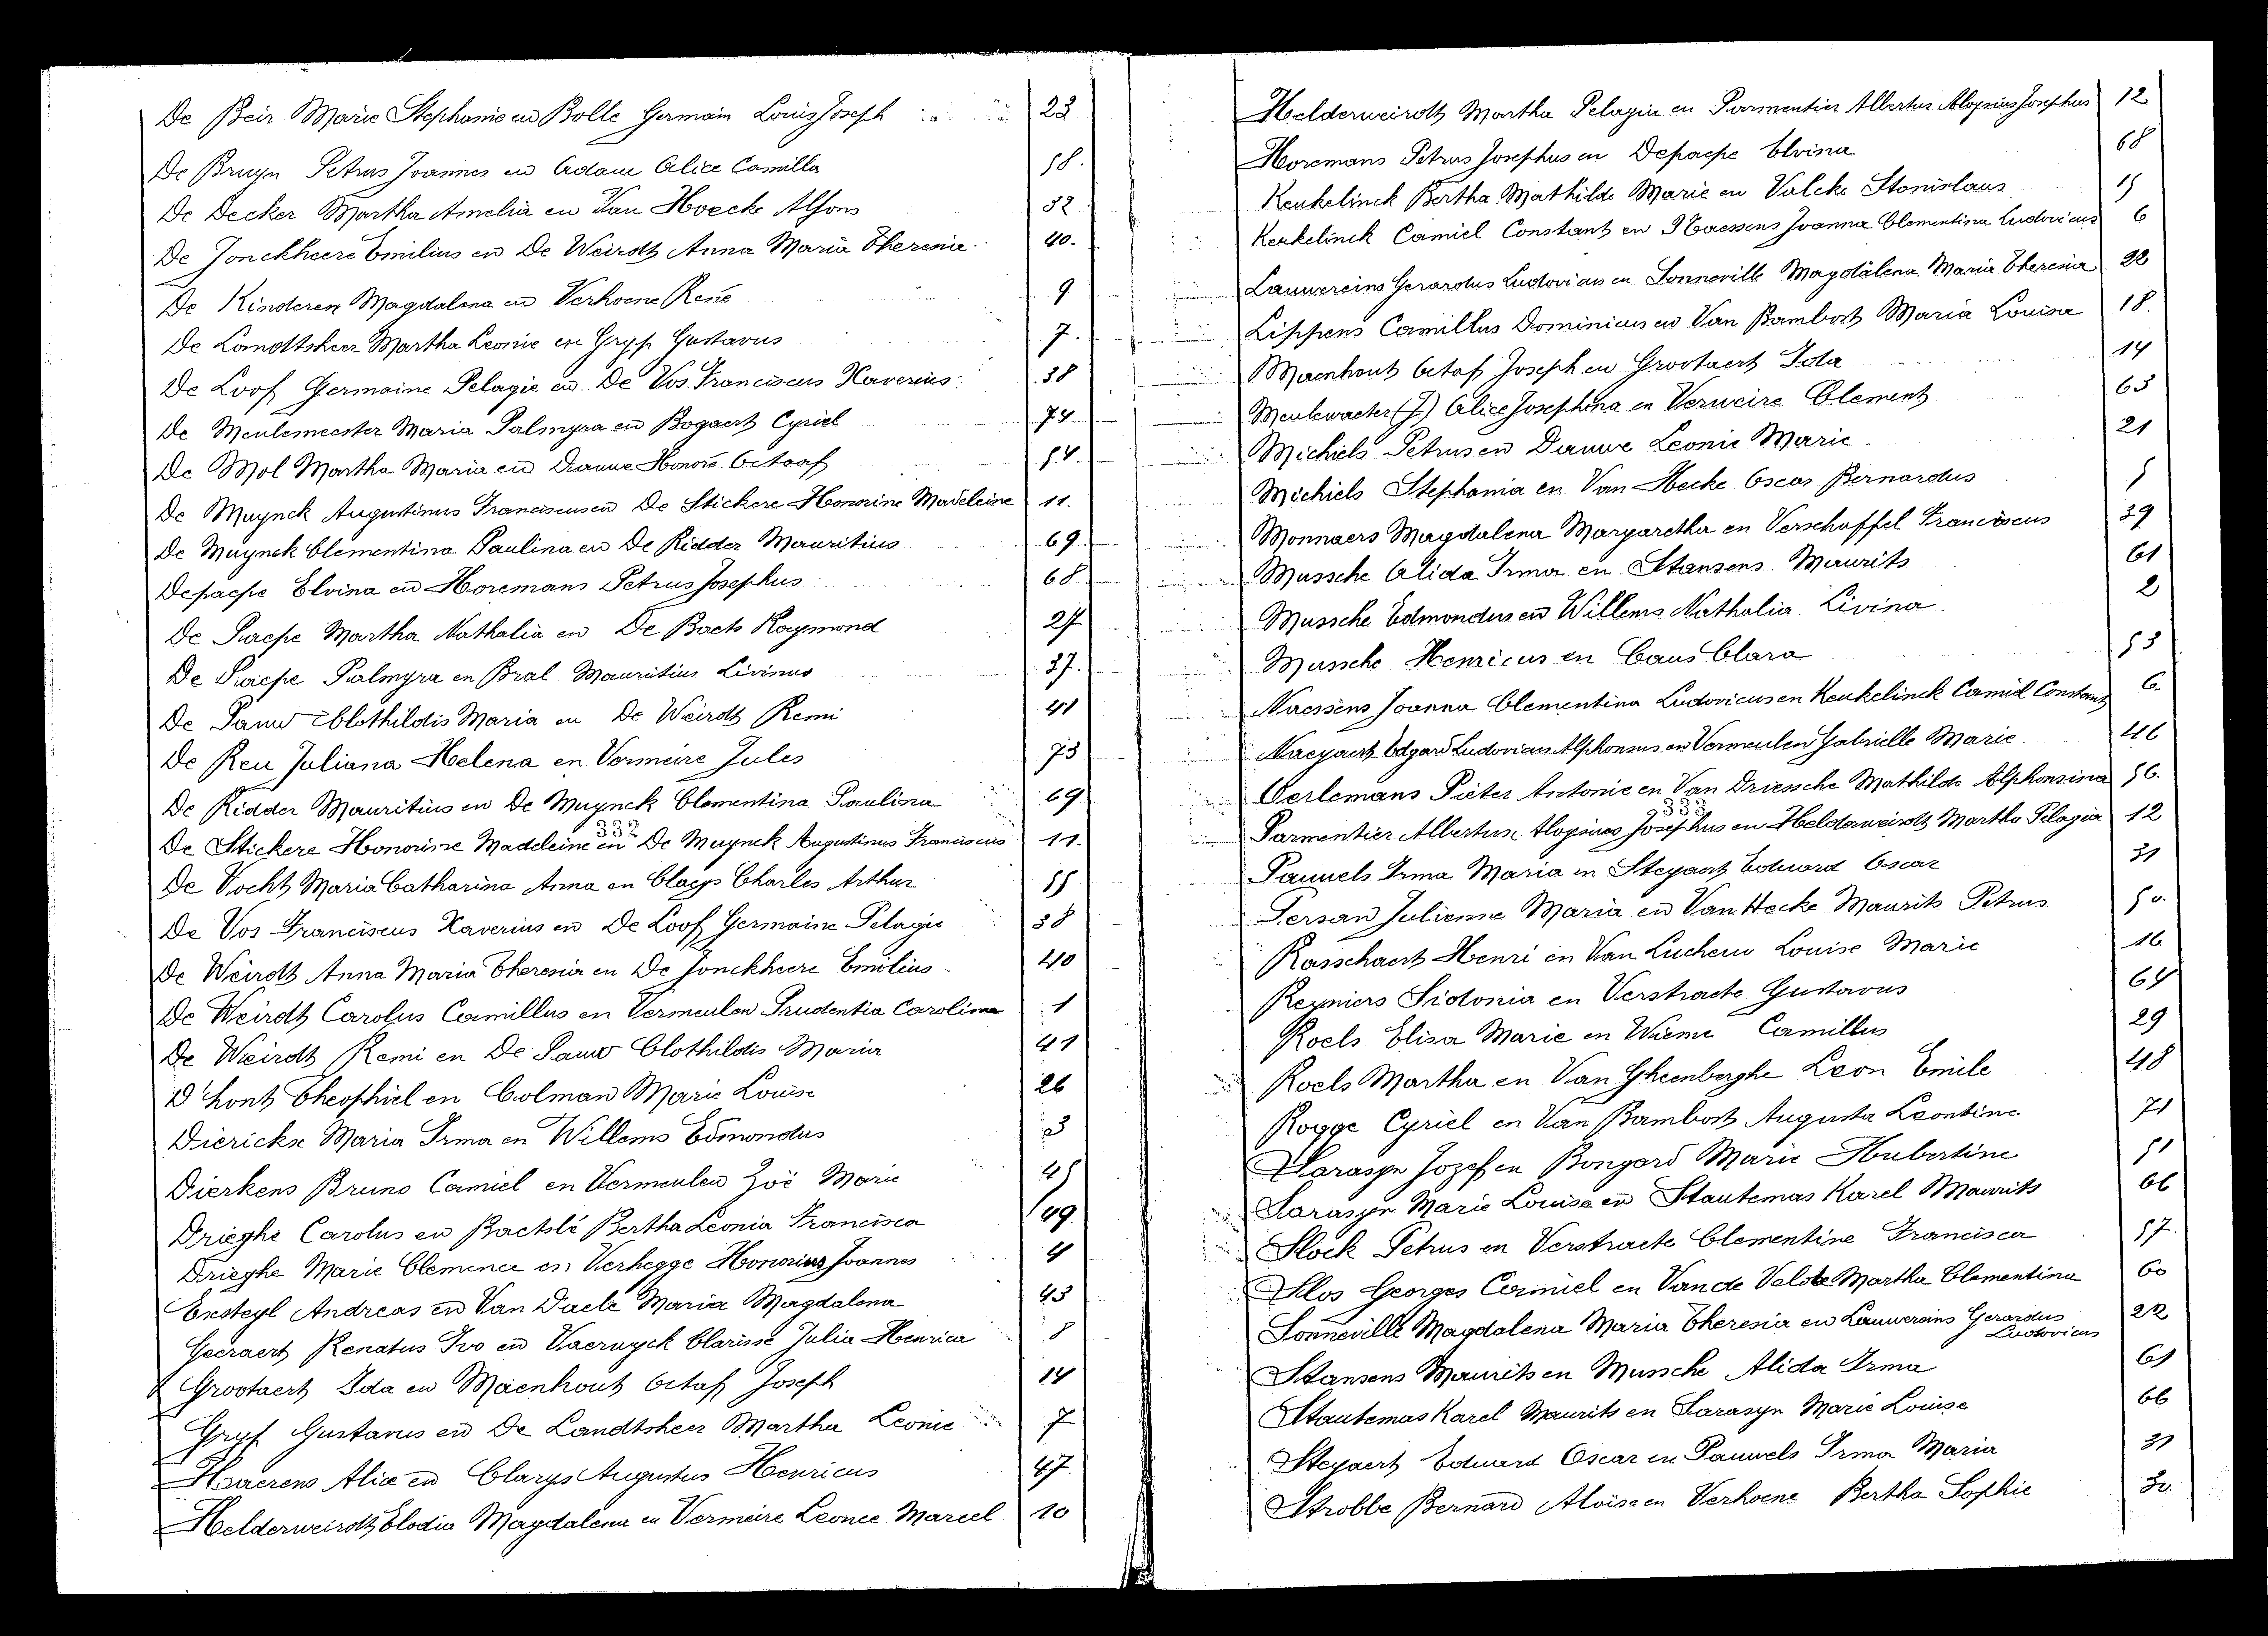 De Beir Marie Stephanie en Bolle Germain Louis Joseph 23
De Bruyn Petrus Joannes en Adam Alice Camilla 58.
De Decker Martha Amelia en Van Hoecke Alfons 32
De Jonckheere Emilius en De Weirdt Anna Maria Theresia 40.
De Kinderen Magdalena en Verhoene René 9
De Landtsheer Martha Leonie en Gryp Gustavus 7.
De Loof Germaine Pelagie en De Vos Franciscus Xaverius 38
De Meulemeester Maria Palmyra en Bogaert Cyriel 74
De Mol Martha Maria en Dauwe Honoré Octaaf 54.
De Muynck Augustinus Franciscus en De Stickere Honorine Madeleine 11.
De Muynck Clementina Paulina en De Ridder Mauritius 69
Depaepe Elvina en Horemans Petrus Josephus 68
De Paepe Martha Nathalia en De Baets Raymond 27
De Paepe Palmyra en Bral Mauritius Livinus 37.
De Pauw Clothildis Maria en De Weirdt Remi 41
De Reu Juliana Helena en Vermeire Jules 73
De Ridder Mauritius en De Muynck Clementina Paulina 69
332
De Stickere Honorine Madeleine en De Muynck Augustinus Franciscus 11.
De Vocht Maria Catharina Anna en Claeys Charles Arthur 55
De Vos Franciscus Xaverius en De Loof Germaine Pelagie 38
De Weirdt Anna Maria Theresia en De Jonckheere Emilius 40
De Weirdt Carolus Camillus en Vermeulen Prudentia Carolina 1
De Weirdt Remi en De Pauw Clothildis Maria 41
D'hont Theophiel en Colman Marie Louise 26
Dierickx Maria Irma en Willems Edmondus 3
Dierkens Bruno Camiel en Vermeulen Zoë Marie 45
Drieghe Carolus en Baetslé Bertha Leonia Francisca 49.
Drieghe Marie Clemence en Verhegge Honorius Joannes 4
Ensteyl Andreas en Van Daele Maria Magdalena 43
Geeraert Renatus Ivo en Vaerwyck Clarisse Julia Henrica 8
Grootaert Ida en Maenhout Octaf Joseph 14
Gryp Gustavus en De Landtsheer Martha Leonie 7
Haerens Alice en Clarys Augustus Henricus 47.
Helderweirdt Elodia Magdalena en Vermeire Leonce Marcel 10
Helderweirdt Martha Pelagia en Parmentier Albertus Aloysius Josephus 12
Horemans Petrus Josephus en Depaepe Elvina 68
Keukelinck Bertha Mathilde Marie en Valcke Stanislaus 15
Keukelinck Camiel Constant en Naessens Joanna Clementina Ludovicus 6
Lauwereins Gerardus Ludovicus en Sonneville Magdalena Maria Theresia 22
Lippens Camillus Dominicus en Van Bambost Maria Louisa 18.
Maenhout Octaf Joseph en Grootaert Ida 14
Meulewaeter (J.) Alice Josephina en Verweire Clement 63
Michiels Petrus en Dauwe Leonie Marie 21
Michiels Stephania en Van Hecke Oscar Bernardus 5
Monnaers Magdalena Margaretha en Verschaffel Franciscus 39
Mussche Alida Irma en Stansens Maurits 61
Mussche Edmondus en Willems Nathalia Livina 2
Mussche Henricus en Caus Clara 53
Naessens Joanna Clementina Ludovicus en Keukelinck Camiel Constant 6
Naeyaert Edgard Ludovicus Alphonsus en Vermeulen Gabrielle Marie 46
Oerlemans Pieter Antonie en Van Driessche Mathilde Alphonsina 56.
333
Parmentier Albertus Aloysius Josephus en Helderweirdt Martha Pelagia 12
Pauwels Irma Maria en Steyaert Eduard Oscar 31
Persan Julienne Maria en Van Hecke Maurits Petrus 50.
Rasschaert Henri en Van Luchene Louise Marie 16
Reyniers Sidonia en Verstraete Gustavus 64
Roels Elisa Marie en Wieme Camillus 29
Roels Martha en Van Gheenberghe Leon Emile 48
Rogge Cyriel en Van Bambost Augusta Leontine 71
Sarasyn Jozef en Bongard Marie Hubertine 51
Sarasyn Marie Louise en Stautemas Karel Maurits 66
Slock Petrus en Verstraete Clementine Francisca 57.
Slos Georges Camiel en Van de Velde Martha Clementina 60
Sonneville Magdalena Maria Theresia en Lauwereins Gerardus 22
Ludovicus
Stansens Maurits en Mussche Alida Irma 61
Stautemas Karel Maurits en Sarasyn Marie Louise 66
Steyaert Eduard Oscar en Pauwels Irma Maria 31
Strobbe Bernard Aloïse en Verhoene Bertha Sophie 30.